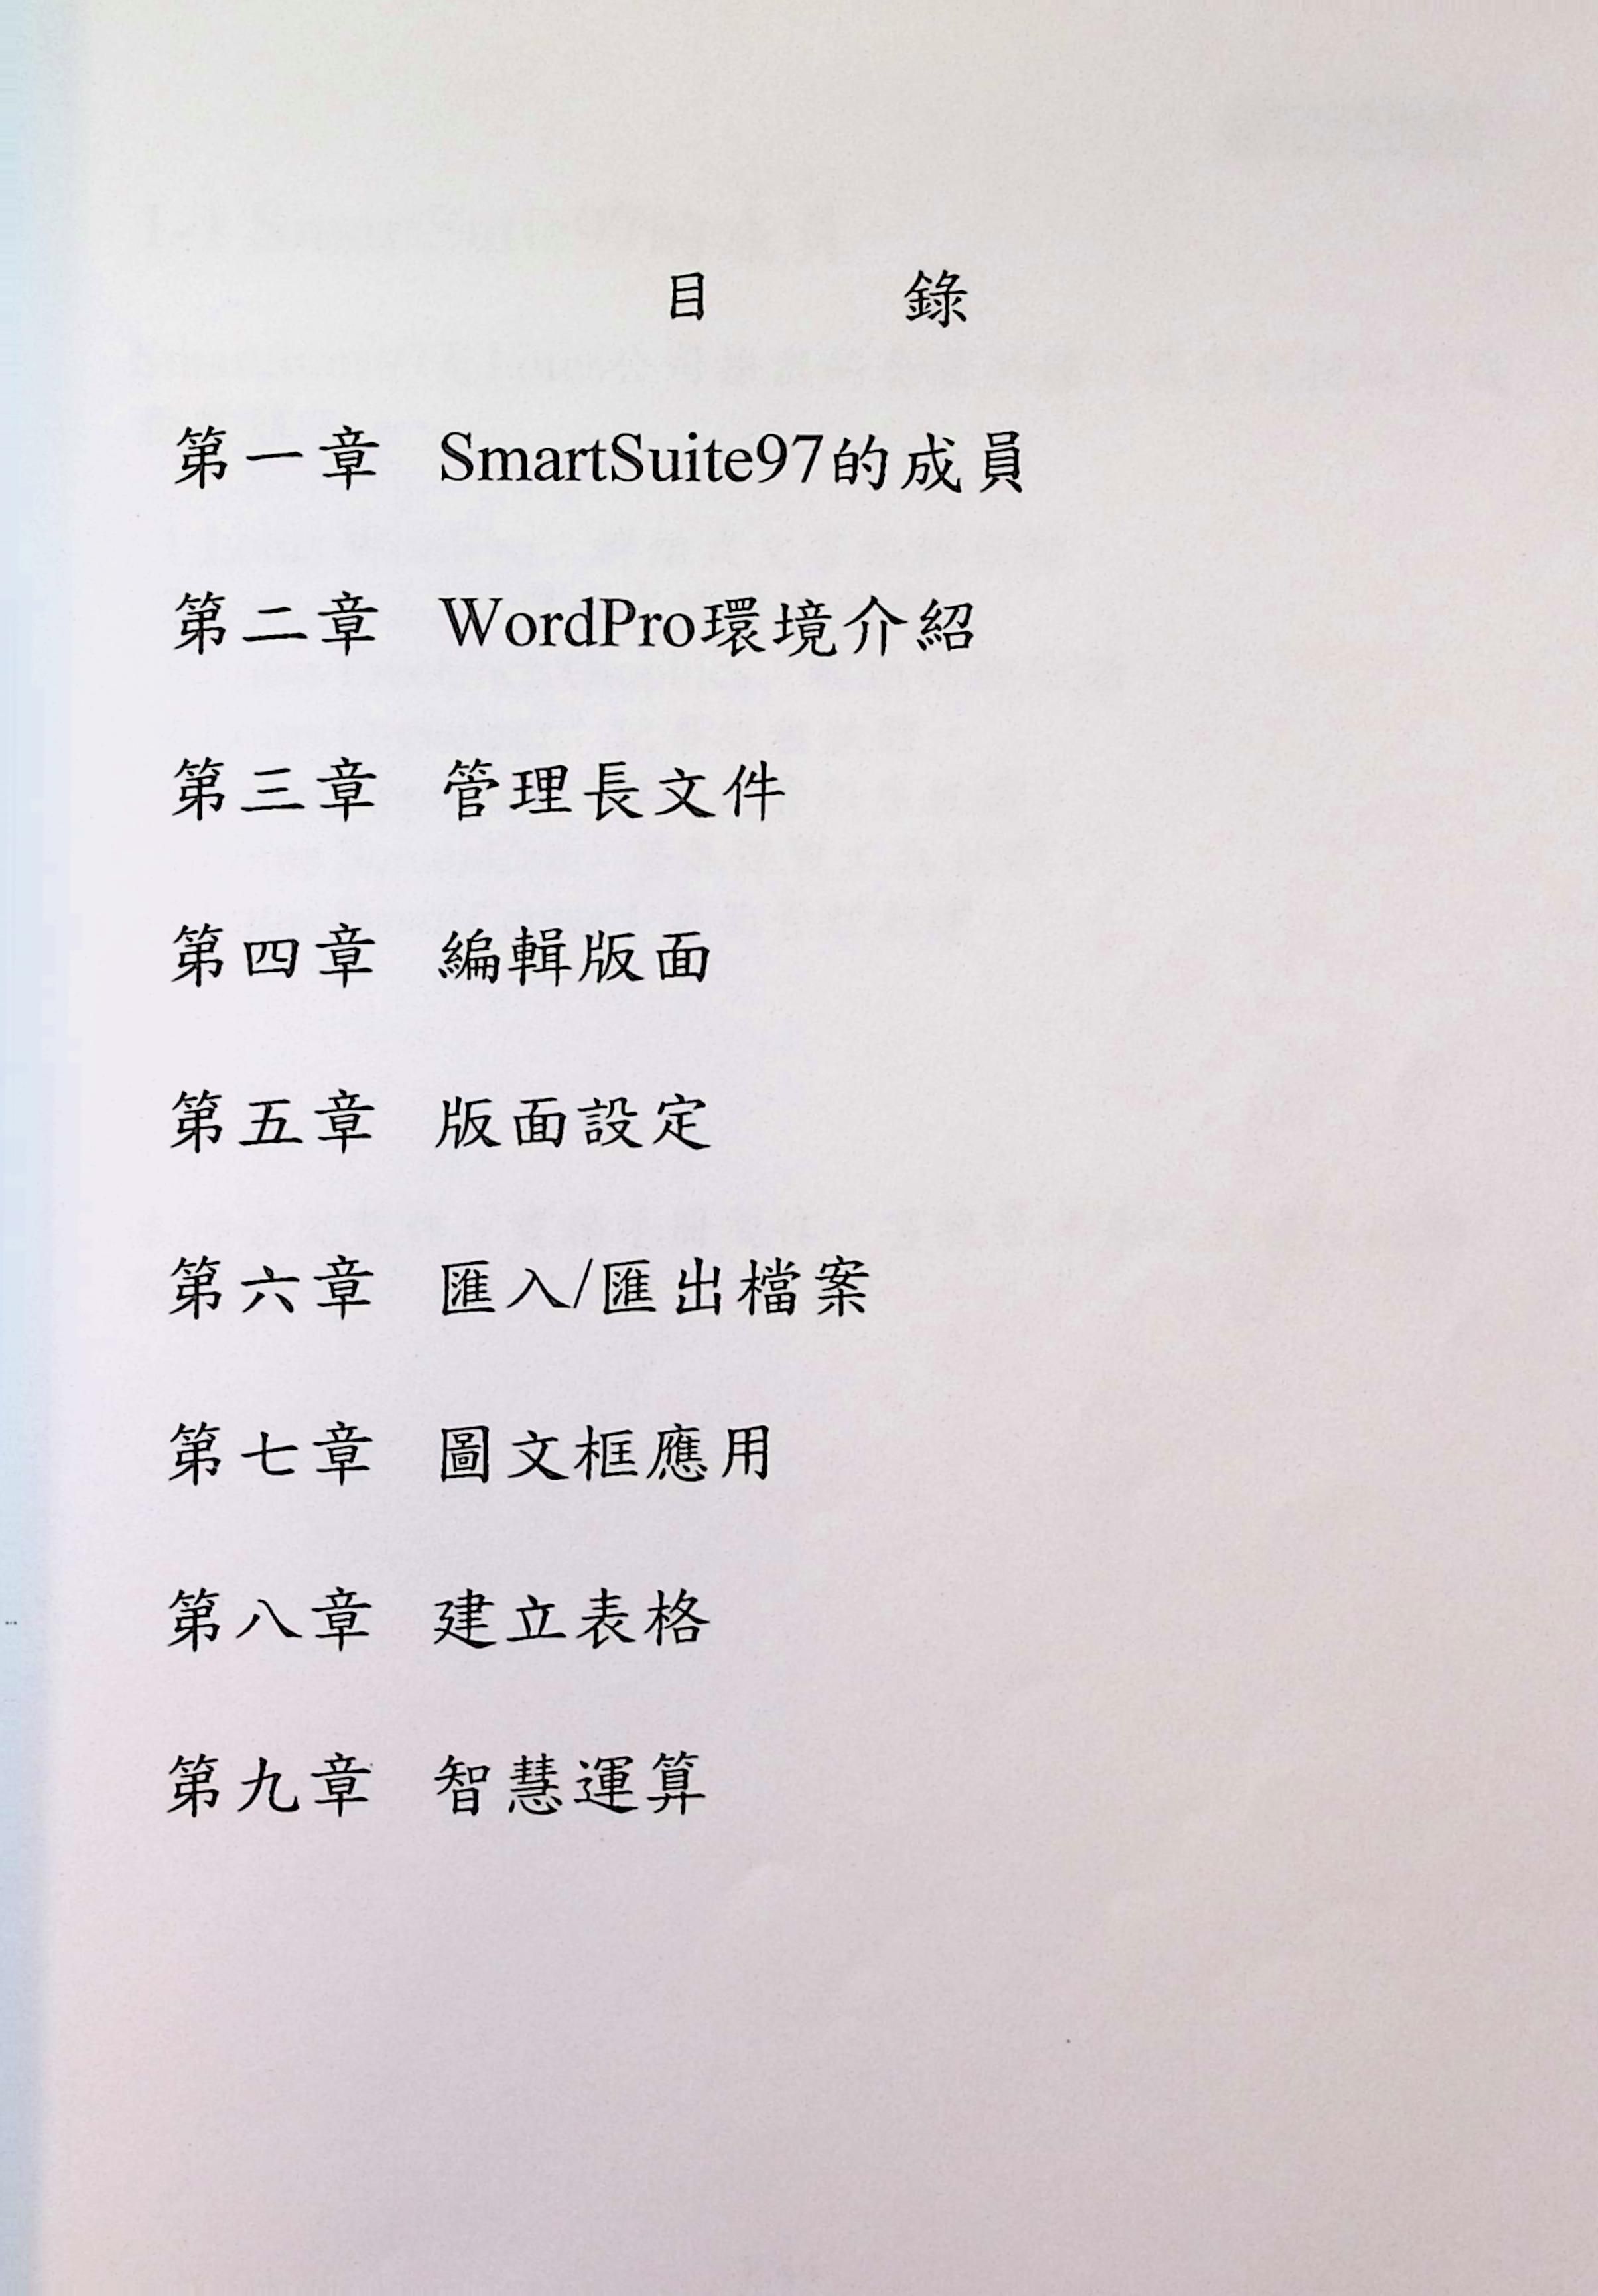 目 錄
第一章 SmartSuite97的成員
第二章 WordPro環境介紹
第三章 管理長文件
第四章 編輯版面
第五章 版面設定
第六章 匯入/匯出檔案
第七章 圖文框應用
第八章 建立表格
第九章 智慧運算